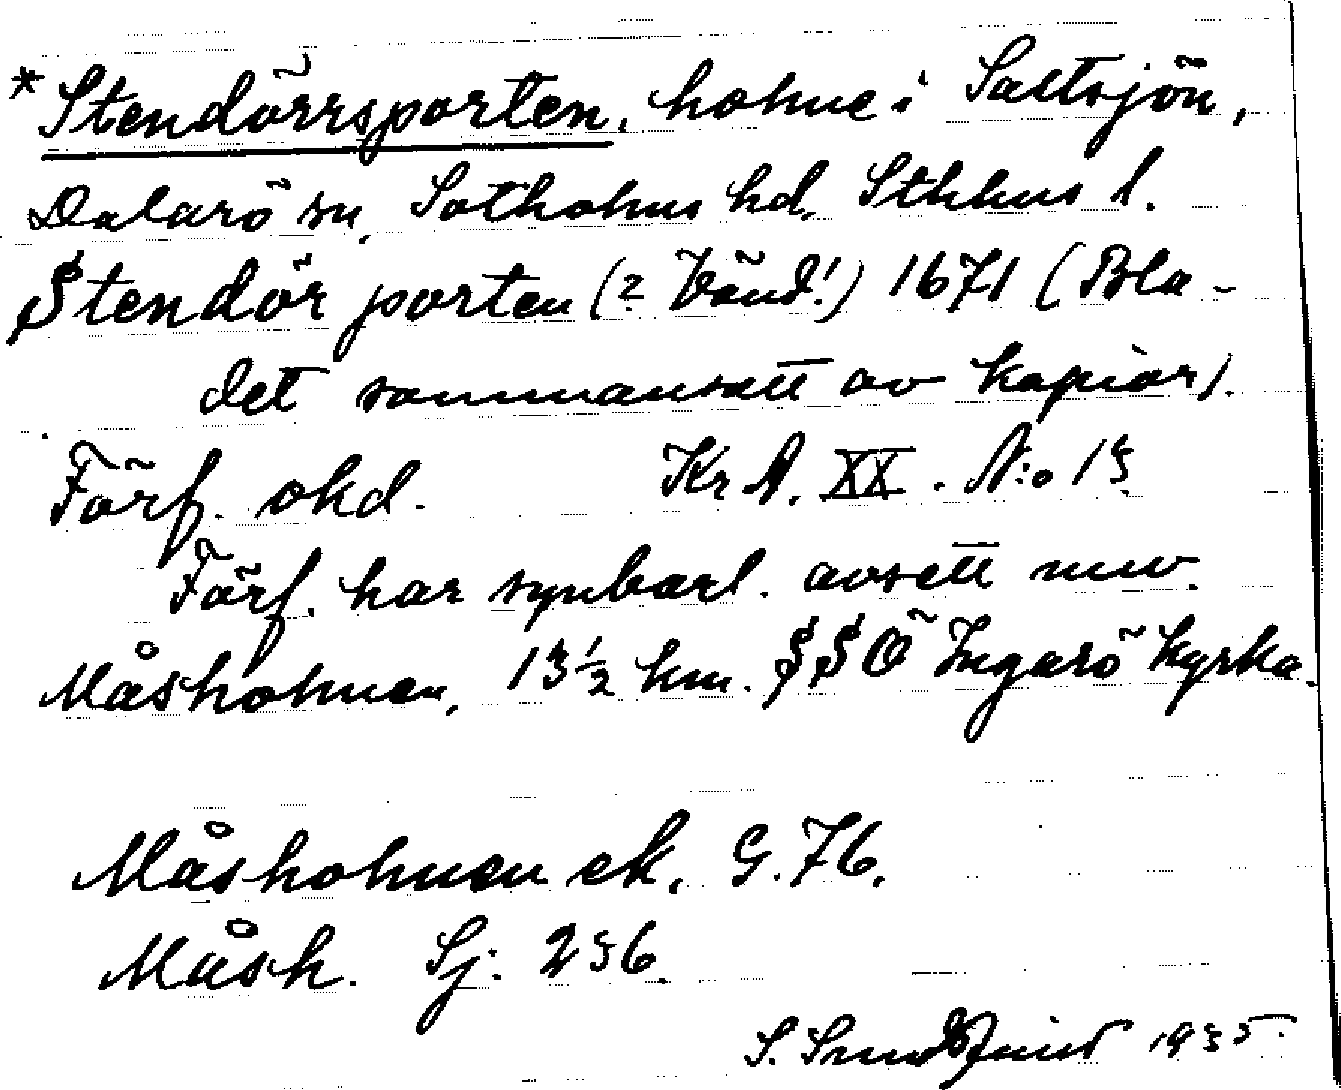 *Stendörrsporten, holme i Saltsjön,
Dalarö sn, Sotholms hd, Sthlms l.
Stendör porten (? Vänd!) 1671 (Bla-
det sammansatt av kopior).
Förf. okd. Kr A. XX. N:o 13.
Förf. har synbarl. avsett nuv.
Måsholmen, 13½ km. SSO Ingarö kyrka.
Måsholmen ek. G. 76.
Måsh. Sj. 236.
S. 1935.